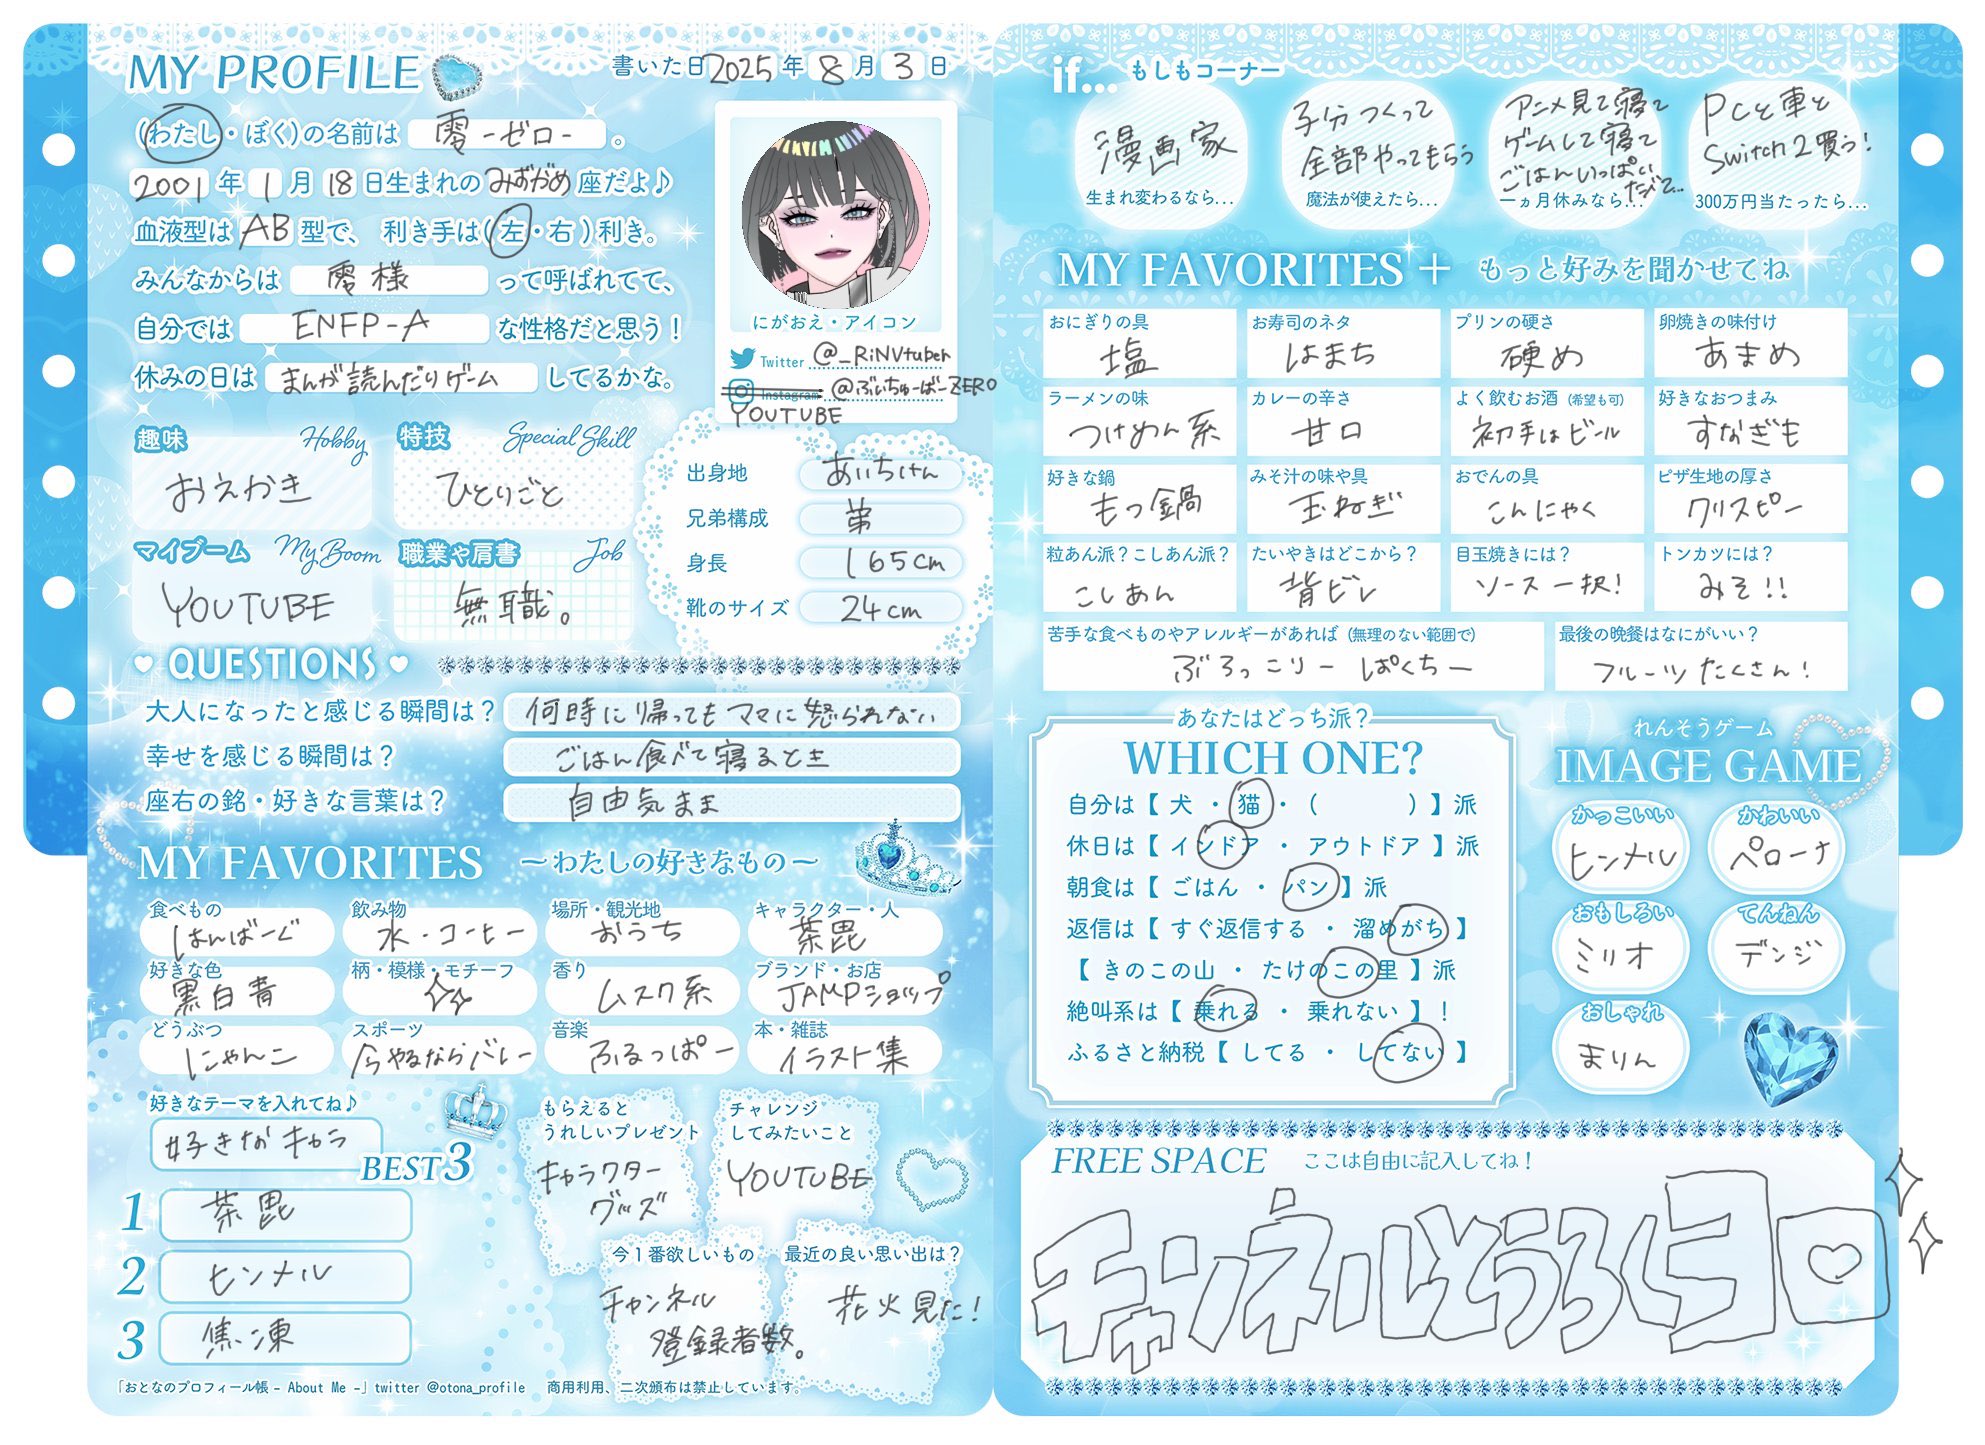 MY PROFILE
書いた日 2025 年 8 月 3 日
(わたし・ぼく)の名前は 零 -ゼロ- 。
2001 年 1 月 18 日生まれの みずがめ 座だよ♪
血液型は AB 型で、 利き手は( 左・右 )利き。
みんなからは 零様 って呼ばれてて、
自分では ENFP-A な性格だと思う！
休みの日は まんが読んだりゲーム してるかな。
にがおえ・アイコン
Twitter @_RiNVtuber
Instagram @ぶいちゅーばーZERO
YOUTUBE
趣味 Hobby
おえかき
特技 Special Skill
ひとりごと
マイブーム My Boom
YOUTUBE
職業や肩書 Job
無職。
出身地 あいちけん
兄弟構成 弟
身長 165cm
靴のサイズ 24cm
QUESTIONS
大人になったと感じる瞬間は？ 何時に帰ってもママに怒られない
幸せを感じる瞬間は？ ごはん食べて寝るとき
座右の銘・好きな言葉は？ 自由気まま
MY FAVORITES ～わたしの好きなもの～
食べもの はんばーぐ
飲み物 水・コーヒー
場所・観光地 おうち
キャラクター・人 荼毘
好きな色 黒白青
柄・模様・モチーフ
香り ムスク系
ブランド・お店 JAMPショップ
どうぶつ にゃんこ
スポーツ 今やるならバレー
音楽 ふるっぱー
本・雑誌 イラスト集
好きなテーマを入れてね♪
好きなキャラ
BEST3
1 荼毘
2 ヒンメル
3 焦凍
もらえると
うれしいプレゼント
キャラクター
グッズ
チャレンジ
してみたいこと
YOUTUBE
今1番欲しいもの
チャンネル
登録者数。
最近の良い思い出は？
花火見た！
「おとなのプロフィール帳 - About Me -」twitter @otona_profile 商用利用、二次頒布は禁止しています。
if... もしもコーナー
漫画家
生まれ変わるなら...
子分つくって
全部やってもらう
魔法が使えたら...
アニメ見て寝て
ゲームして寝て
ごはんいっぱい
たべて...
一ヵ月休みなら...
PCと車と
Switch2買う！
300万円当たったら...
MY FAVORITES ＋ もっと好みを聞かせてね
おにぎりの具 塩
お寿司のネタ はまち
プリンの硬さ 硬め
卵焼きの味付け あまめ
ラーメンの味 つけめん系
カレーの辛さ 甘口
よく飲むお酒 (希望も可) 初手はビール
好きなおつまみ すなぎも
好きな鍋 もつ鍋
みそ汁の味や具 玉ねぎ
おでんの具 こんにゃく
ピザ生地の厚さ クリスピー
粒あん派？こしあん派？ こしあん
たいやきはどこから？ 背ビレ
目玉焼きには？ ソース一択！
トンカツには？ みそ！！
苦手な食べものやアレルギーがあれば (無理のない範囲で) ぶろっこりー ぱくちー
最後の晩餐はなにがいい？ フルーツたくさん！
あなたはどっち派？
WHICH ONE?
自分は【 犬 ・ 猫 ・ ( ) 】派
休日は【 インドア ・ アウトドア 】派
朝食は【 ごはん ・ パン 】派
返信は【 すぐ返信する ・ 溜めがち 】
【 きのこの山 ・ たけのこの里 】派
絶叫系は【 乗れる ・ 乗れない 】！
ふるさと納税【 してる ・ してない 】
れんそうゲーム
IMAGE GAME
かっこいい ヒンメル
かわいい ペローナ
おもしろい ミリオ
てんねん デンジ
おしゃれ まりん
FREE SPACE ここは自由に記入してね！
チャンネルとうろくヨロ